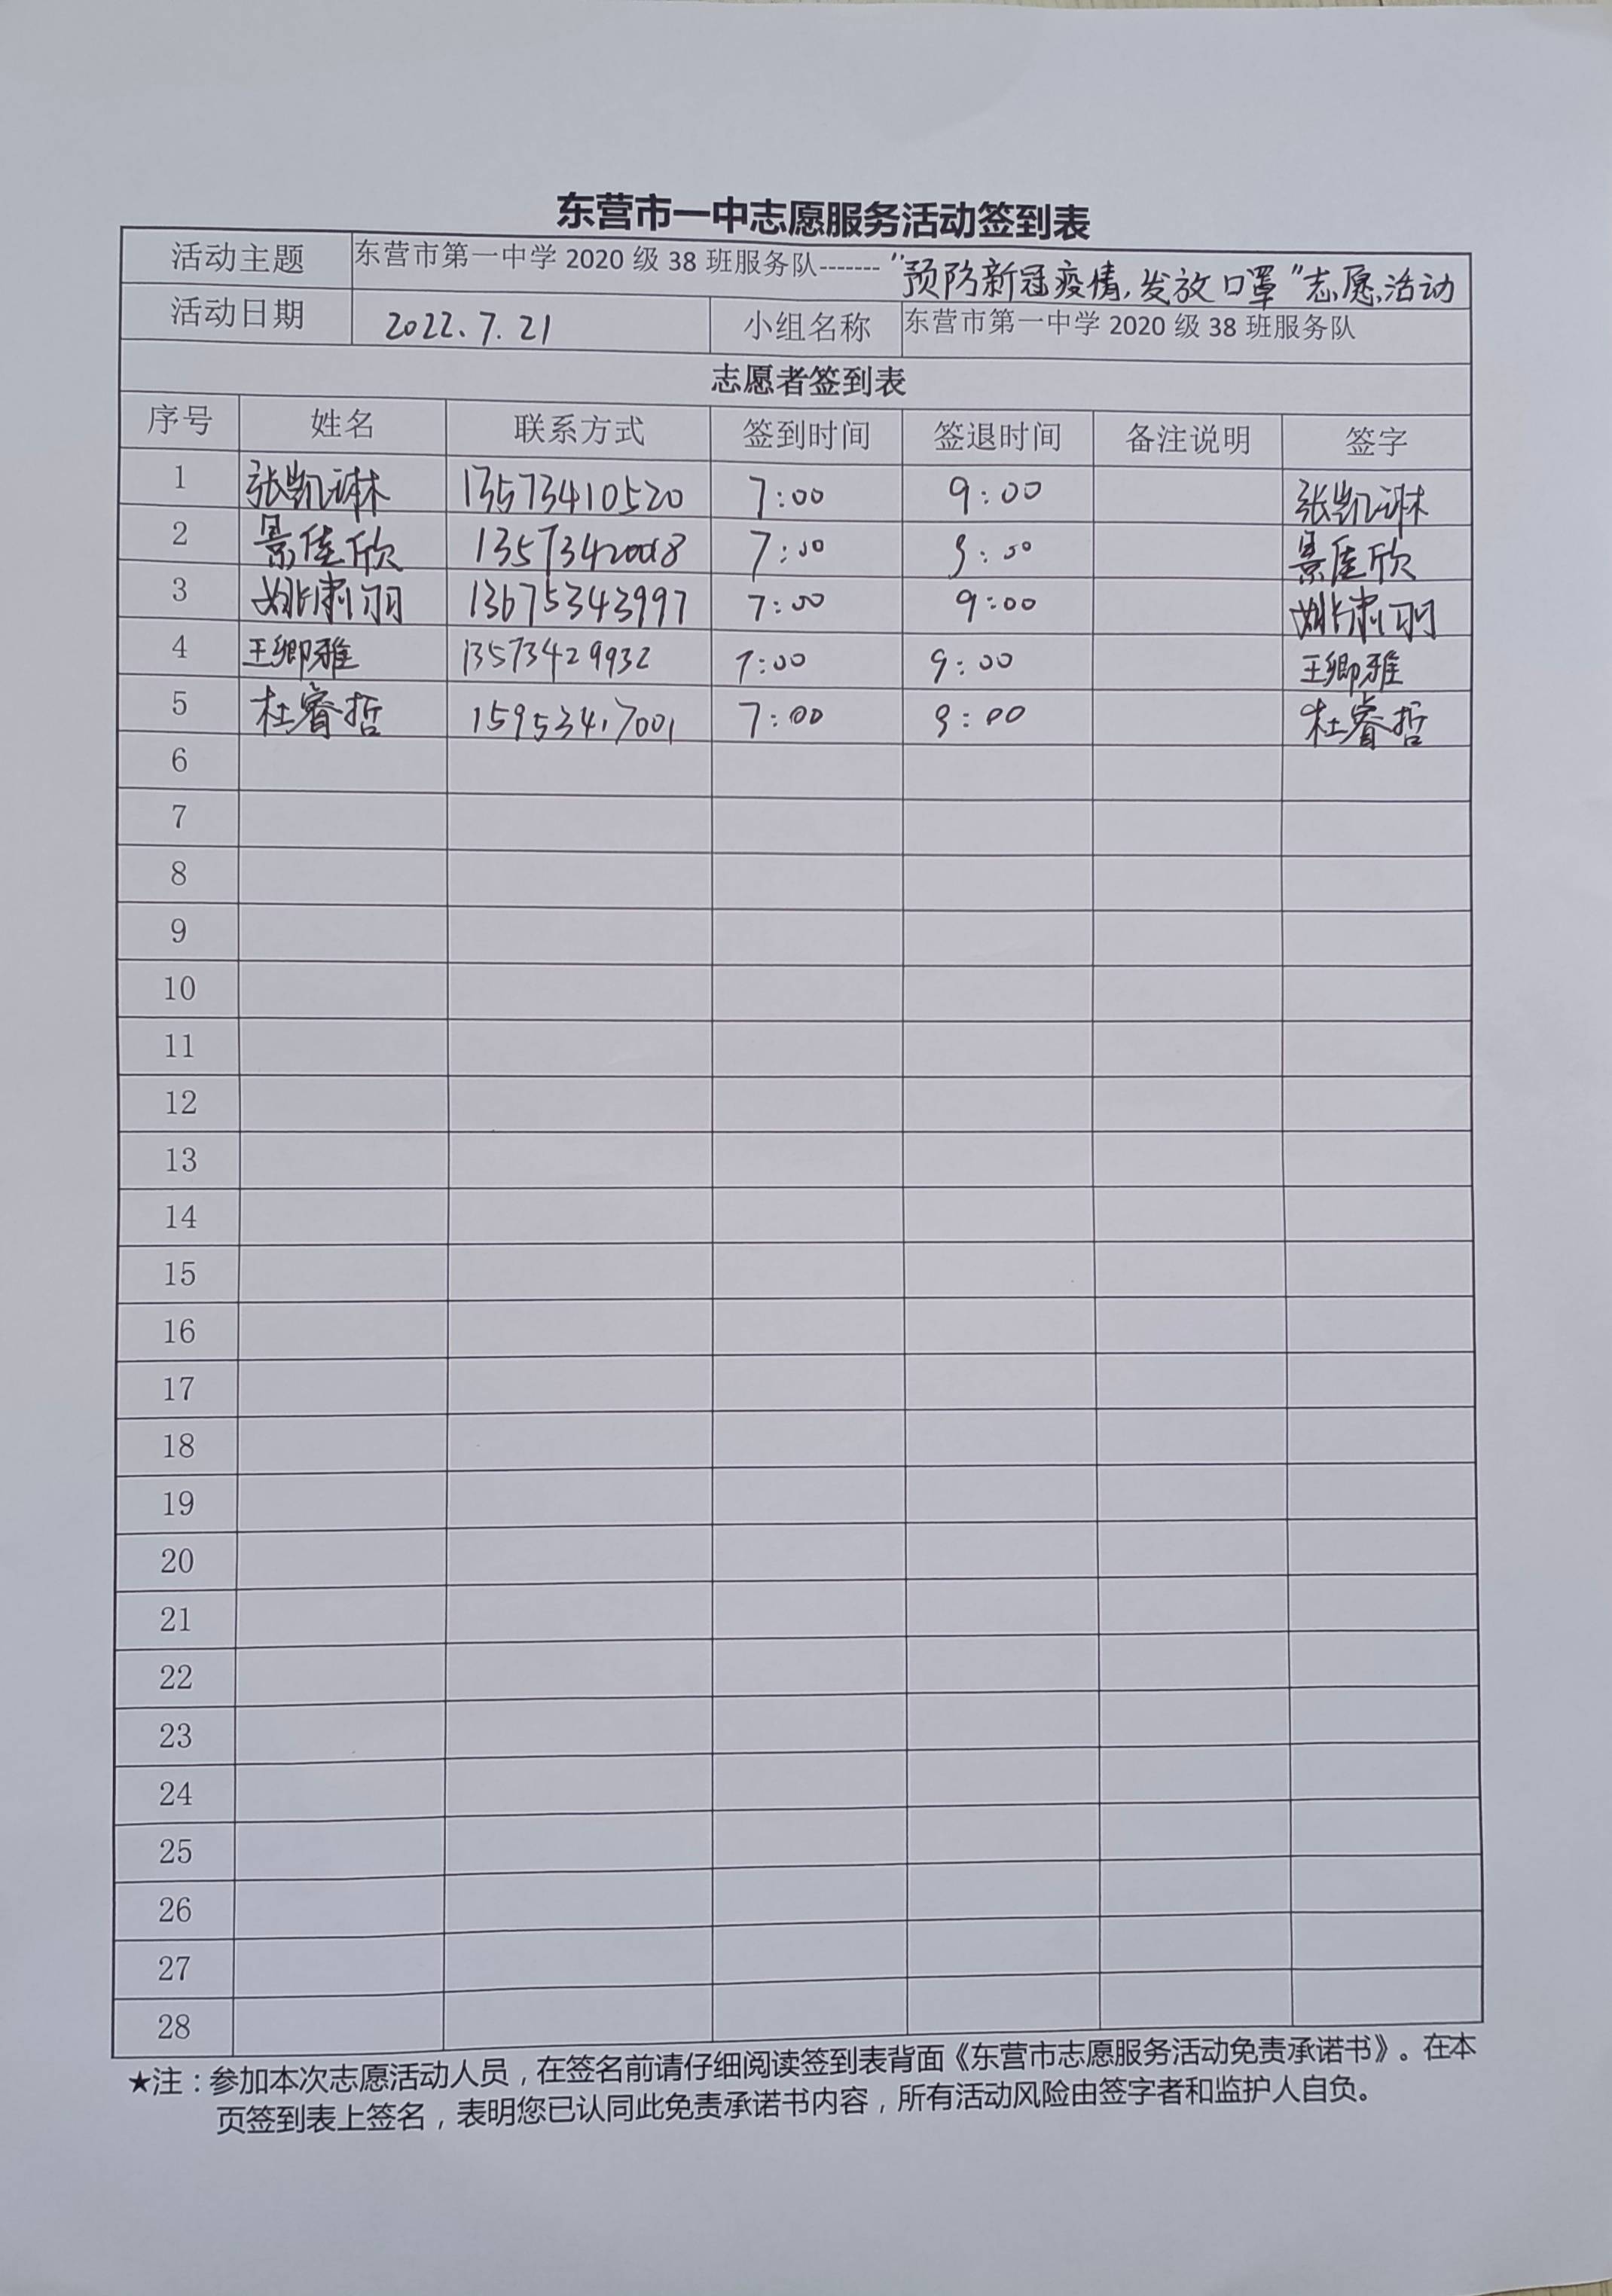 东营市一中志愿服务活动签到表
活动主题 东营市第一中学 2020 级 38 班服务队------- "预防新冠疫情,发放口罩"志愿活动
活动日期 2022.7.21 小组名称 东营市第一中学 2020 级 38 班服务队
志愿者签到表
序号 姓名 联系方式 签到时间 签退时间 备注说明 签字
1 张凯琳 13573410520 7:00 9:00 张凯琳
2 景佳欣 7:00 9:00 景佳欣
3 姚肃羽 13675343997 7:00 9:00 姚肃羽
4 王卿雅 13573429932 7:00 9:00 王卿雅
5 杜睿哲 15953417001 7:00 9:00 杜睿哲
6
7
8
9
10
11
12
13
14
15
16
17
18
19
20
21
22
23
24
25
26
27
28
★注：参加本次志愿活动人员，在签名前请仔细阅读签到表背面《东营市志愿服务活动免责承诺书》。在本
页签到表上签名，表明您已认同此免责承诺书内容，所有活动风险由签字者和监护人自负。